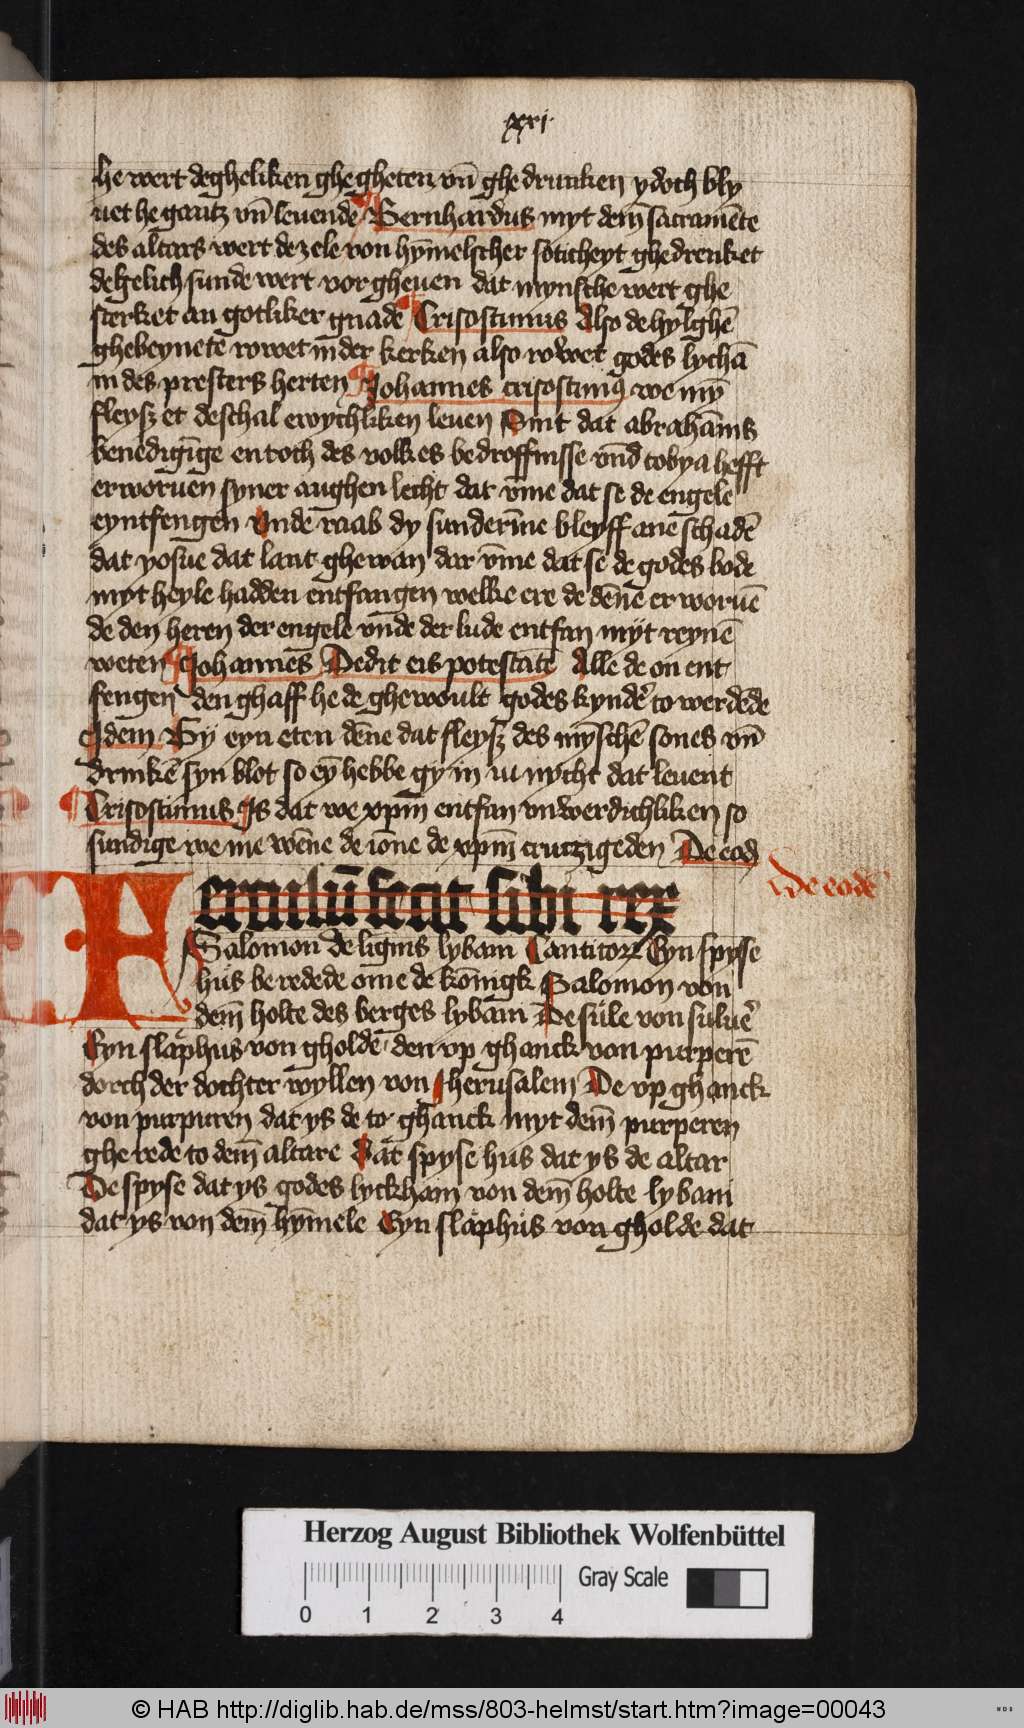 xxi
he wert degheliken ghegheten vn̄ ghedrunken ydoch bly
uet he gantz vn̄ leuende Bernhardus myt dem sacramēte
des altars wert de zele von hȳmelscher soticheyt ghedrenket
degelich sunde wert vorgheuen dat mynsche wert ghe
sterket an gotliker gnade Crisostimus Also de hylghē
ghebeynete rowet in der kerken also rowet godes lychā
in des presters herten Johannes crisostimꝰ we mȳ
fleysz et de schal ewychliken leuen Sint dat abrahāms
benedigīge entoch des volkes bedroffnisse vnd tobya hefft
erworuen syner aughen lecht dat vm̄e dat se de engele
eyntfengen Unde raab dy sunderīne bleyff ane schadē
dat yosue dat lant ghewan dar vm̄e dat se de godes bode
myt heyle hadden entfangen welke ere de dēne erworuē
de den heren der engele vnde der lude entfan myt reynē
weten Johannes Dedit eis potestatē Alle de on ent
fengen den ghaff he de ghewoult godes kynder to werdēde
Idem Sy eyn eten dēne dat fleysz des mȳschē sones vn̄
drinkē syn blot so eȳ hebbe gy in iu nycht dat leuent
Crisostimus Is dat we xp̄m entfan vnwerdichliken so
sundige we me wēne de iōne de xp̄m crutzigeden De eod
De eodē
Ferculū fecit sibi rex
Salomon de lignis lybani Canticorꝝ Eyn spyse
hus beredede ome de kōnigk Salomon von
dem̄ holte des berges lybani De sule von suluer
Eyn slaphus von gholde den vp ghanck von purperē
dorch der dochter wyllen von Jherusalem De vp ghanck
von purpuren dat ys de to ghanck myt dem̄ purperen
gherede to dem̄ altare Dat spyse hus dat ys de altar
De spyse dat ys godes lyckham von dem̄ holte lybani
dat ys von dem̄ hȳmele Eyn slaphus von gholde dat
Herzog August Bibliothek Wolfenbüttel
Gray Scale
0 1 2 3 4
© HAB http://diglib.hab.de/mss/803-helmst/start.htm?image=00043